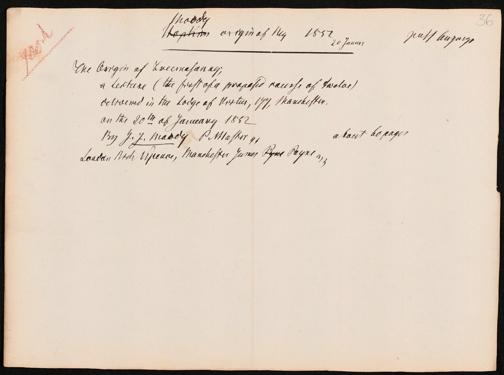 36
Moody
origin of 1852
20 Januar
The Origin of Freemasonry,
a Lecture (the first of a proposed course of Twelve)
delivered in the Lodge of Virtue, 177, Manchester.
on the 20th of January 1852
By J. J. Moody P. Master
about 60 pages
London Rich. Spencer, Manchester James Payne